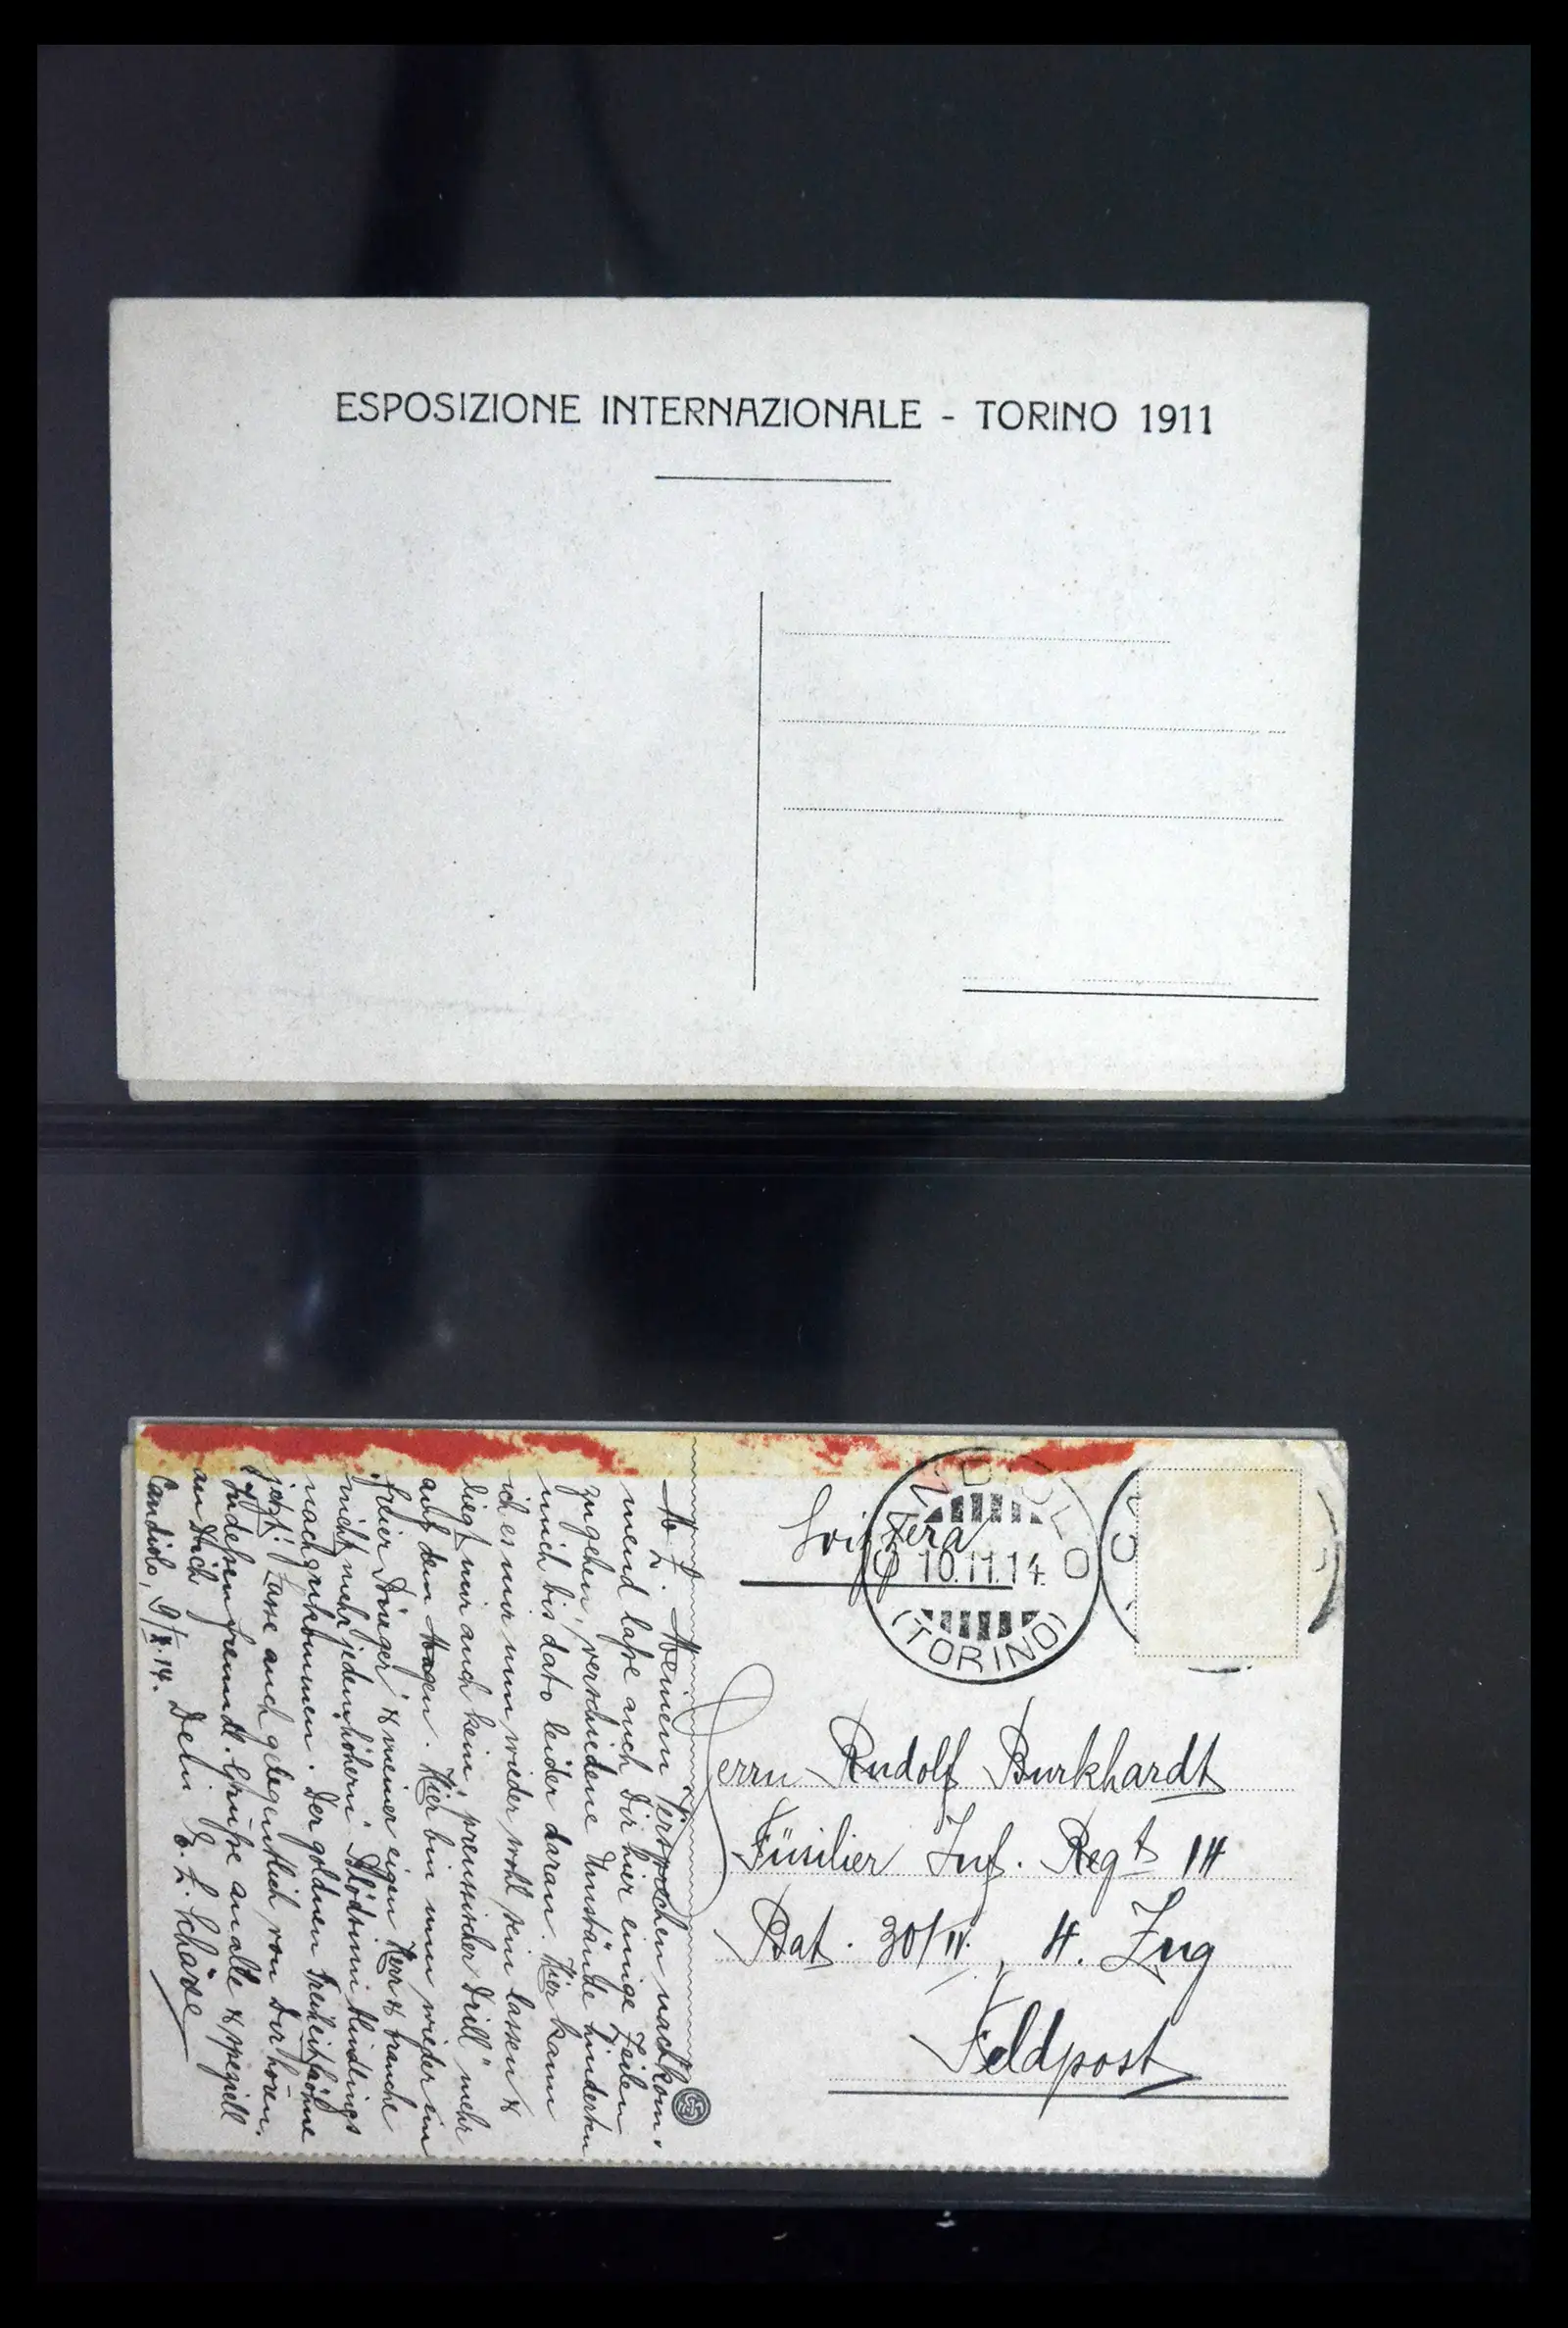 ESPOSIZIONE INTERNAZIONALE - TORINO 1911
Svizzera
CANDIOLO
10.11.14
(TORINO)
Herrn Rudolf Burkhardt
Füsilier Inf. Regt 14
Bat. 30/IV, 4. Zug
Feldpost
M. L. Meinem Versprechen nachkom-
mend lasse auch Dir hier einige Zeilen
zugehen, verschiedene Umstände hinderten
mich bis dato leider daran. Hier kann
ich es mir nun wieder wohl sein lassen &
liegt mir auch kein "preussischer Drill" mehr
auf dem Magen. Hier bin nun wieder ein
"freier Bürger" & meiner eigen Herr & brauche
nicht mehr jedem höhern Blödsinn blindlings
nachzukommen. Der goldnen Freiheit fröhne
jetzt! Lasse auch gelegentlich von Dir hören.
Indessen freundl. Grüsse an alle & speziell
an Dich
Candiolo, 9/X.14. Dein E. L. Schärer